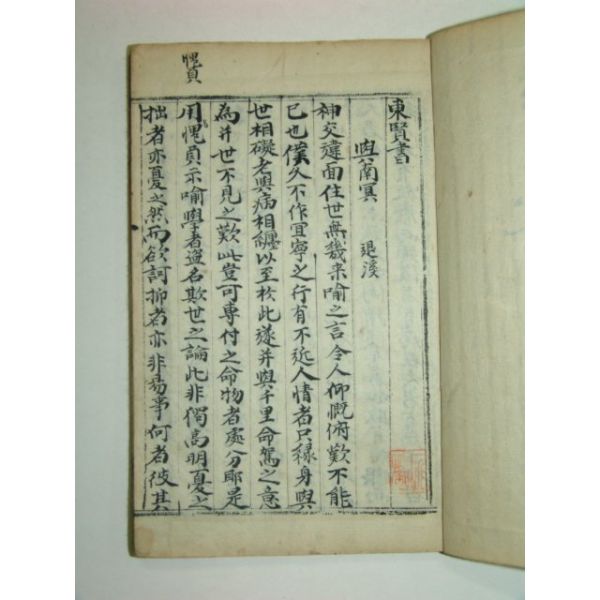 東賢書
與南冥 退溪
神交違面住世無幾來喻之言令人仰慨俯歎不能
已也僕久不作宜寧之行有不近人情者只緣身與
世相礙老與病相纏以至於此遂并與千里命駕之意
為并世不見之歎此豈可專付之命物者處分耶是
用愧負示喻學者盜名欺世之論此非獨高明憂之
拙者亦憂之然而欲訶抑者亦非易事何者彼其
愧負